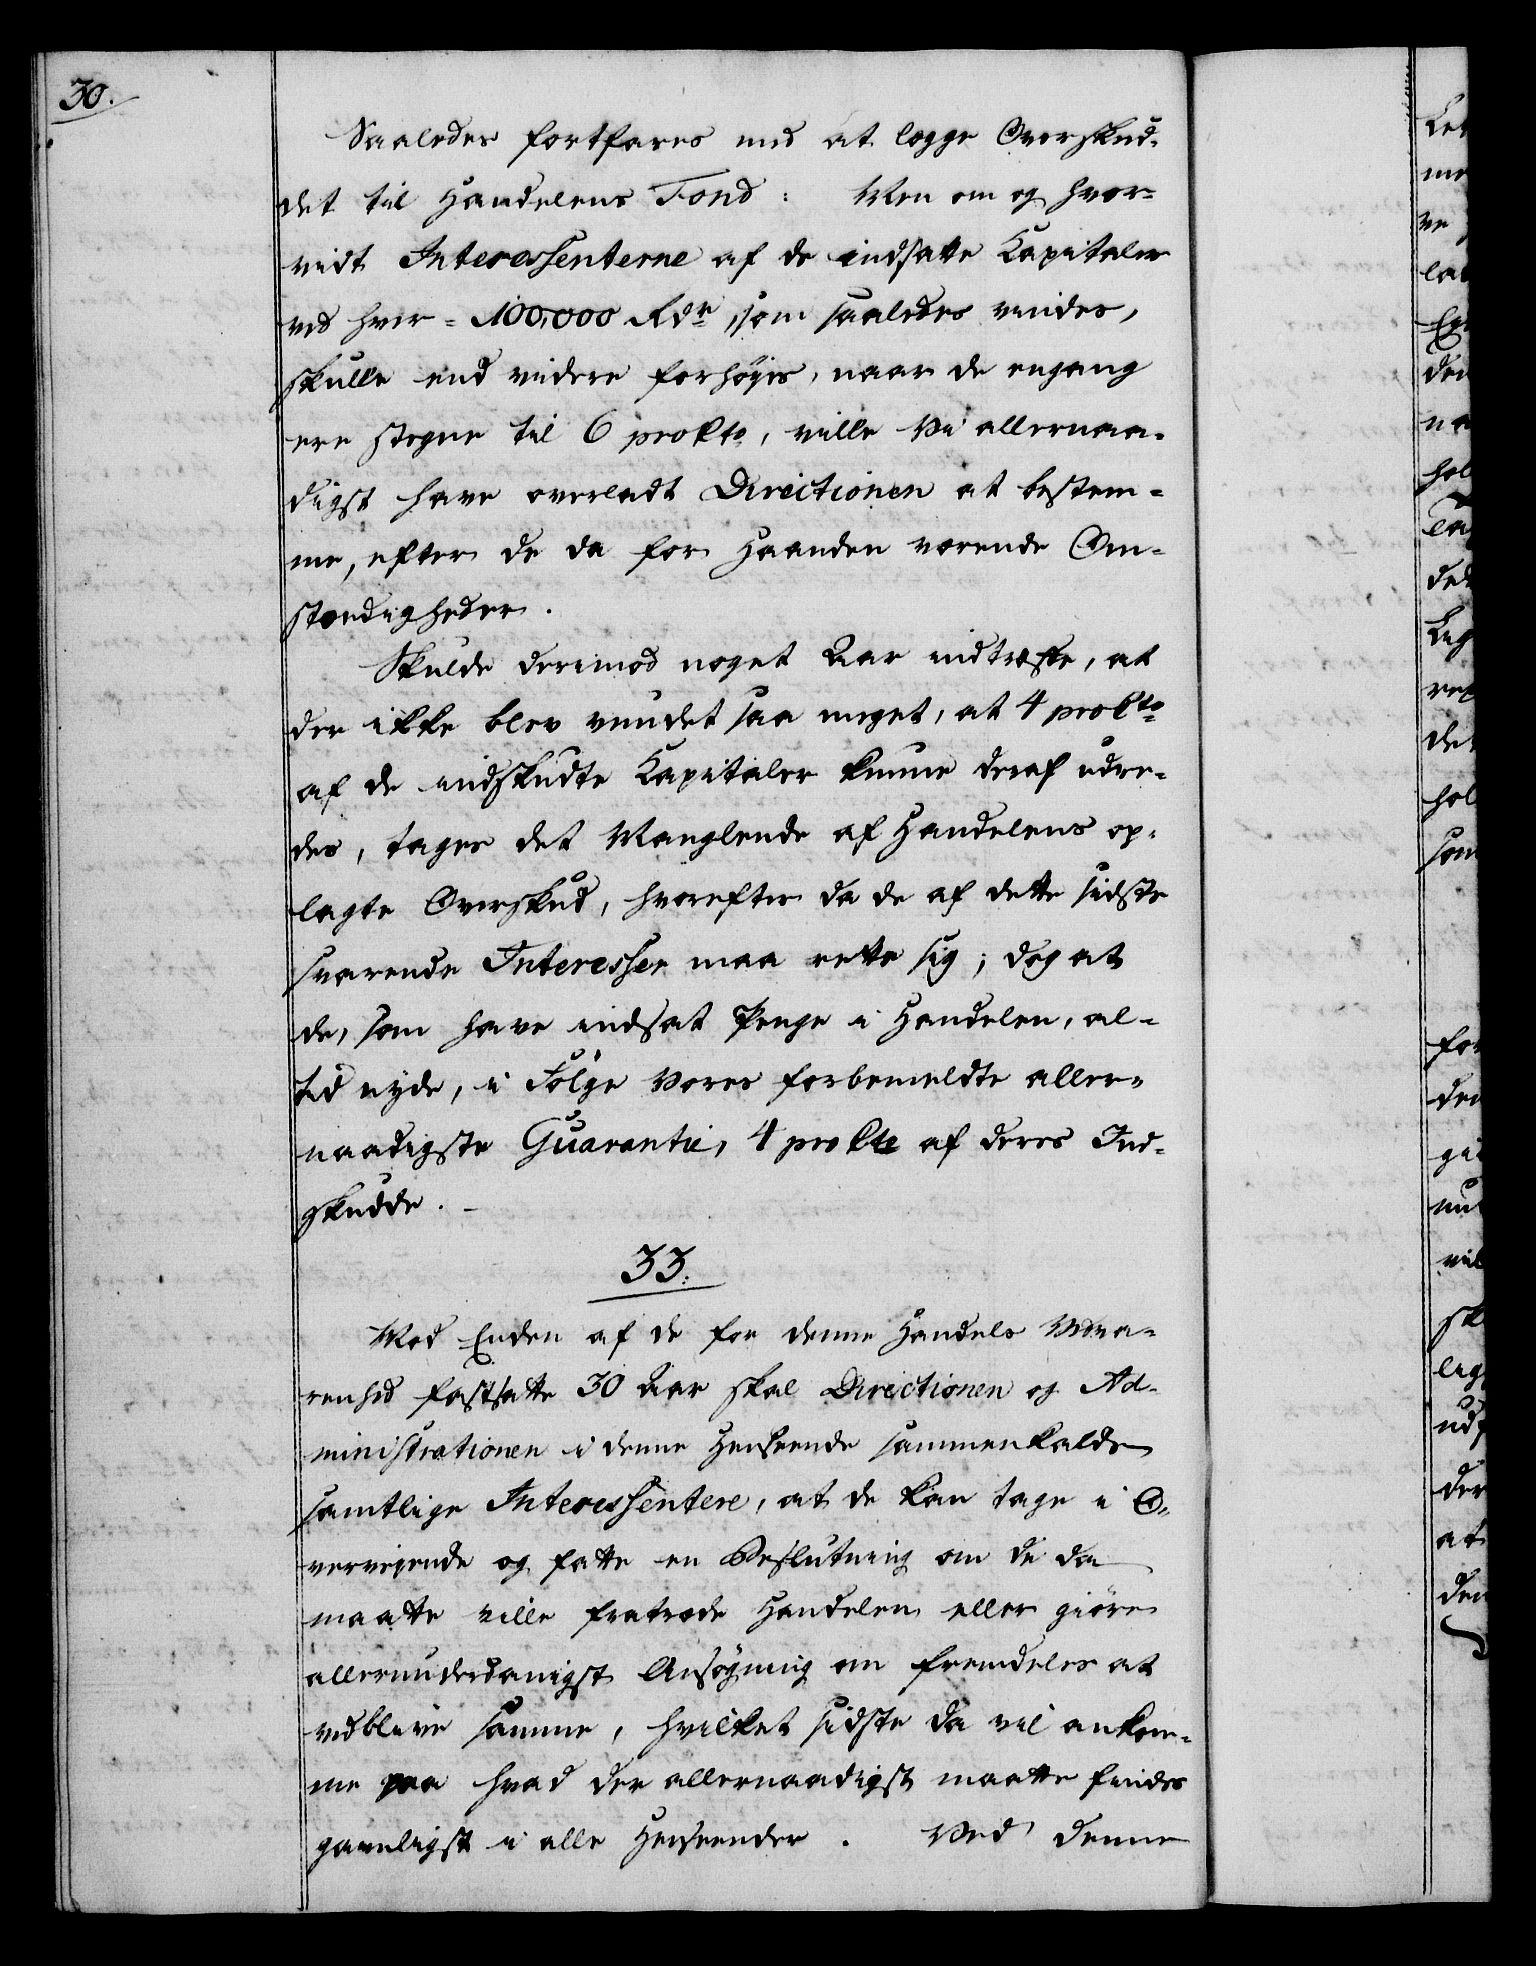 30.
Saaledes fortfares med at lægge Overskud-
det til Handelens Fond: Men om og hvor-
vidt Interessenterne af de indsatte Kapitaler
ved hver 100,000 Rdr, som saaledes vindes,
skulle end videre forhøges, naar de engang
ere stegne til 6 prokto, ville Vi allernaa-
digst have overladt Directionen at bestem-
me, efter de da for Haanden værende Om-
stændigheder.
Skulde derimod noget Aar indtreffe, at
der ikke blev vundet saa meget, at 4 procto
af de indskudte Kapitaler kunne deraf udre-
des, tages det Manglende af Handelens op-
lagte Overskud, hvorefter da de af dette sidste
svarende Interesser maa rette sig; dog at
de, som have indsat Penge i Handelen, al-
tid nyde, i Følge Vores forbemeldte aller-
naadigste Guarantie, 4 prokto af deres Ind-
skudde.
33.
Med Enden af de for denne Handels Vedva-
renhed fastsatte 30 Aar skal Directionen og Ad-
ministrationen i denne Henseende sammenkalde
samtlige Interessentere, at de kan tage i O-
verveiende og fatte en Beslutning om de da
maatte ville fratræde Handelen eller giøre
allerunderdanigst Ansøgning om fremdeles at
vedblive samme, hvilket sidste da vil ankom-
me paa hvad der allernaadigst maatte findes
gavnligst i alle Henseender. Ved denne